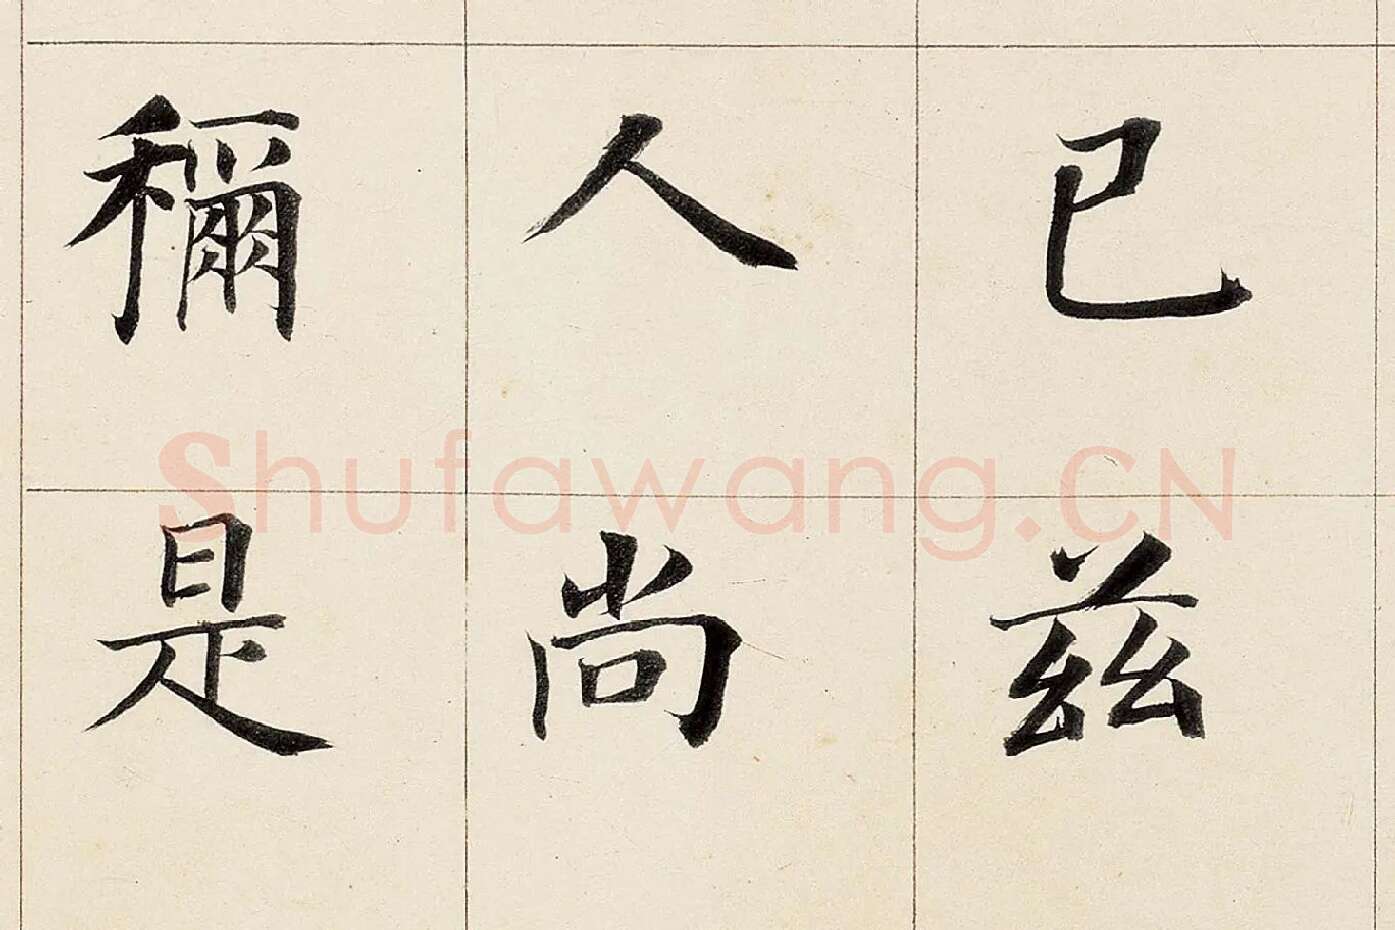 已茲
人尚
穪是
Shufawang.CN